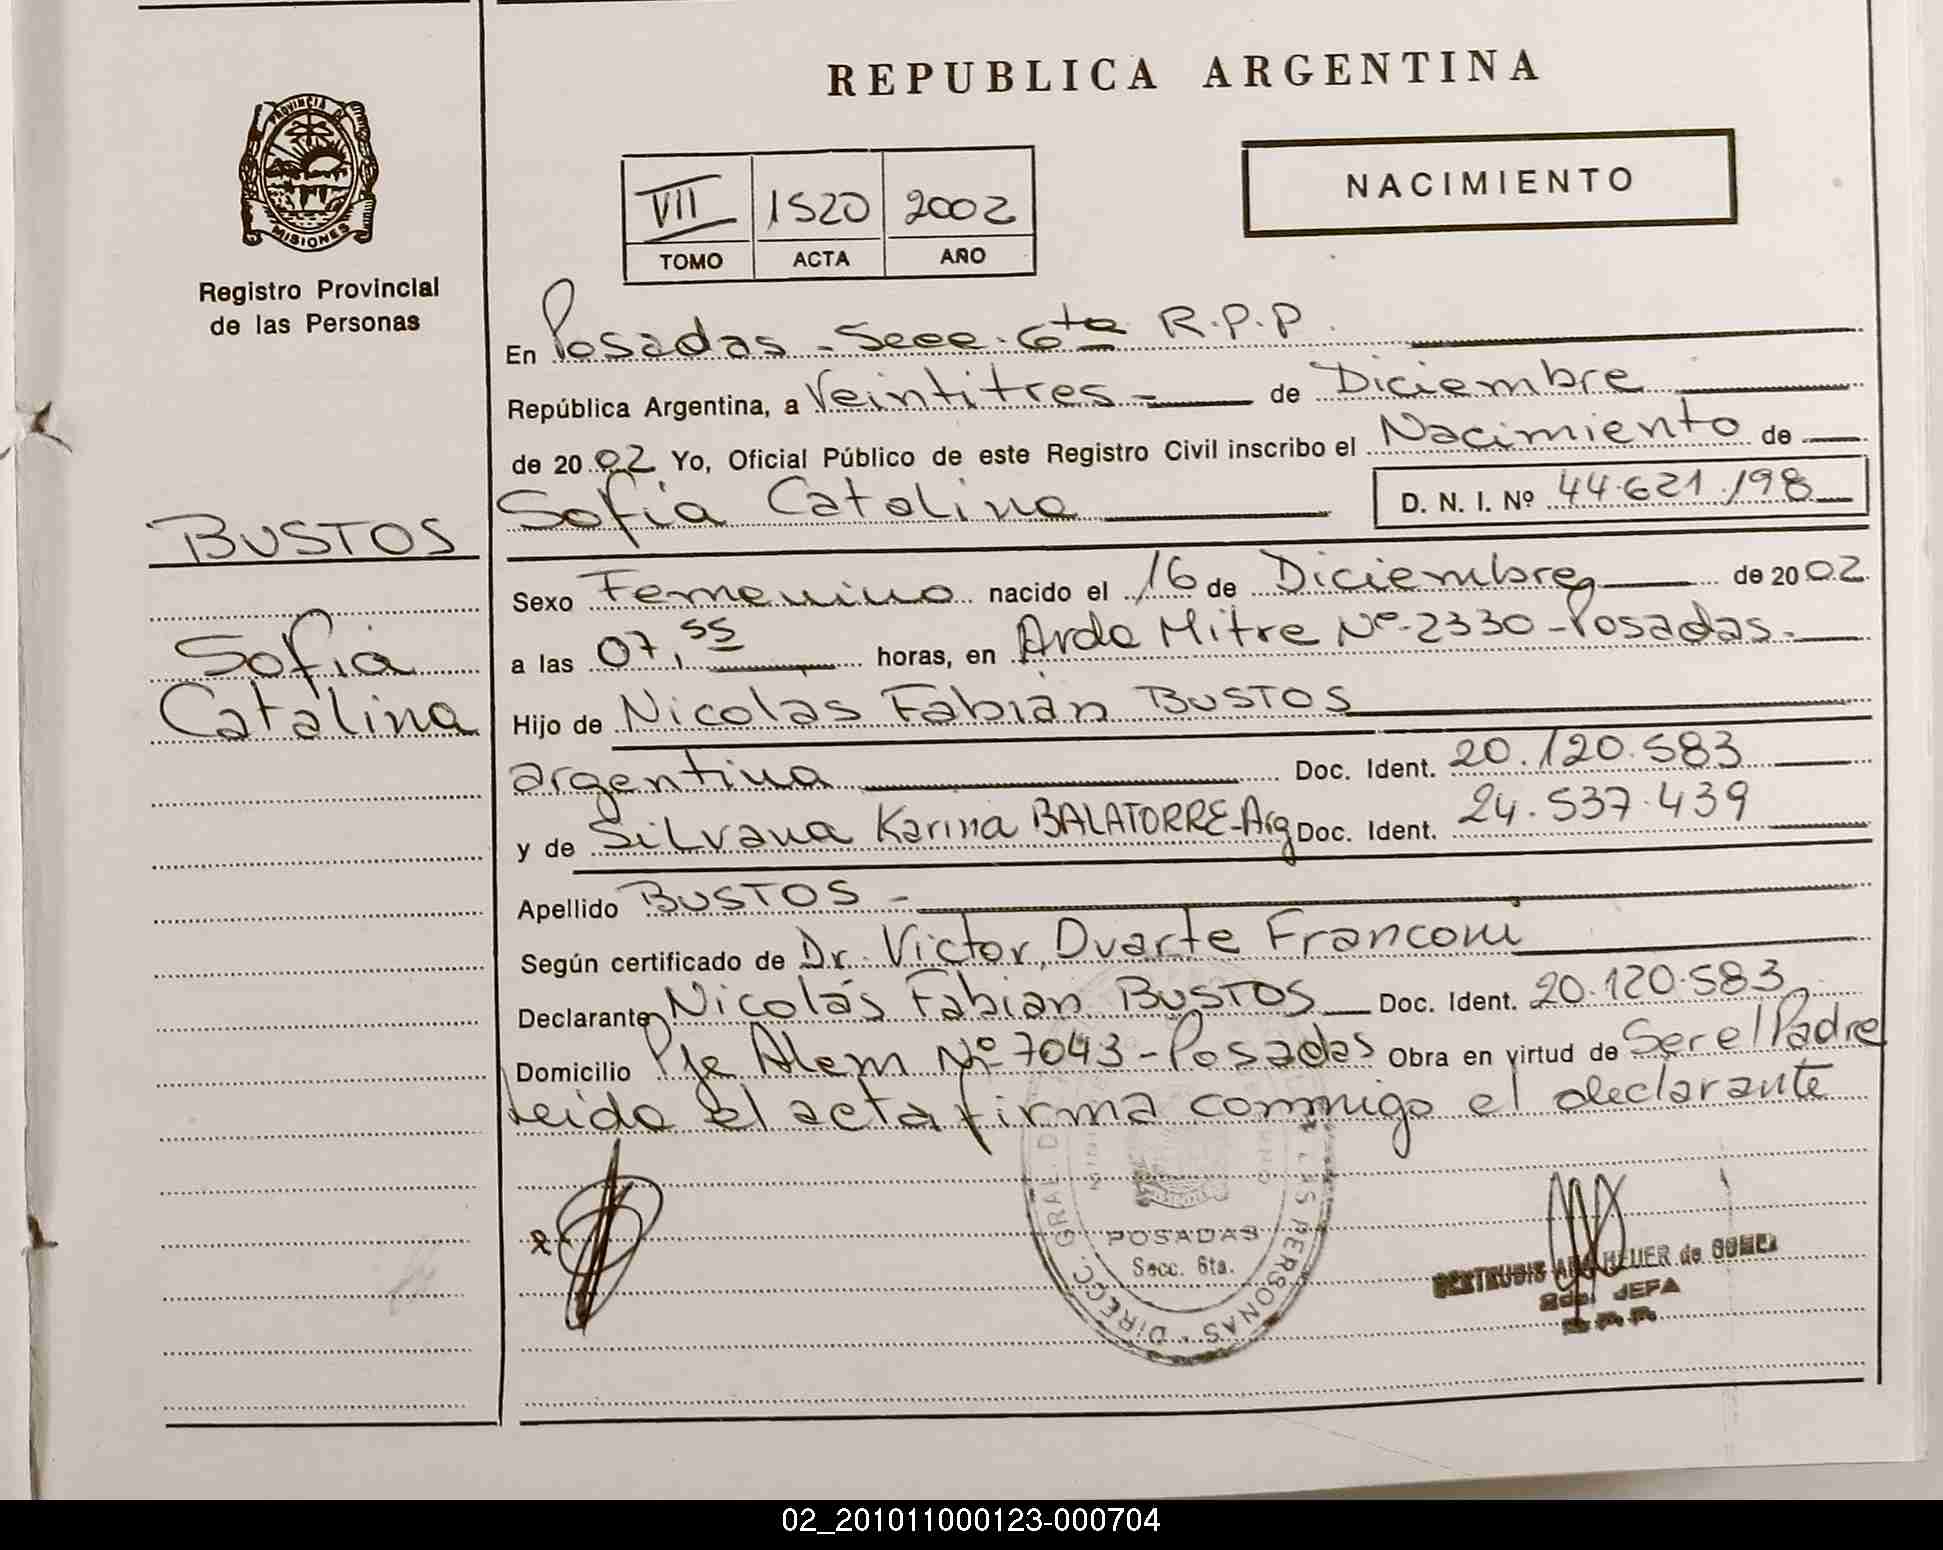 REPUBLICA ARGENTINA
PROVINCIA DE
MISIONES
Registro Provincial
de las Personas
VII 1520 2002
TOMO ACTA AÑO
NACIMIENTO
En Posadas - Secc. 6ta R.P.P.
República Argentina, a Veintitres - de Diciembre
de 2002 Yo, Oficial Público de este Registro Civil inscribo el Nacimiento de
Sofia Catalina D. N. I. Nº 44.621.198
BUSTOS
Sofia
Catalina
Sexo Femenino nacido el 16 de Diciembre de 2002
a las 07,55 horas, en Avda Mitre Nº-2330-Posadas-
Hijo de Nicolas Fabián BUSTOS
argentina Doc. Ident. 20.120.583
y de Silvana Karina BALATORRE-Arg Doc. Ident. 24.537.439
Apellido BUSTOS -
Según certificado de Dr. Victor Duarte Franconi
Declarante Nicolás Fabian BUSTOS Doc. Ident. 20.120.583
Domicilio Pje Alem Nº 7043-Posadas Obra en virtud de Ser el Padre
Leido el acta firma conmigo el declarante
DIRECC. GRAL. DE LAS PERSONAS
POSADAS
Secc. 6ta.
HEUER de
JEFA
02_201011000123-000704